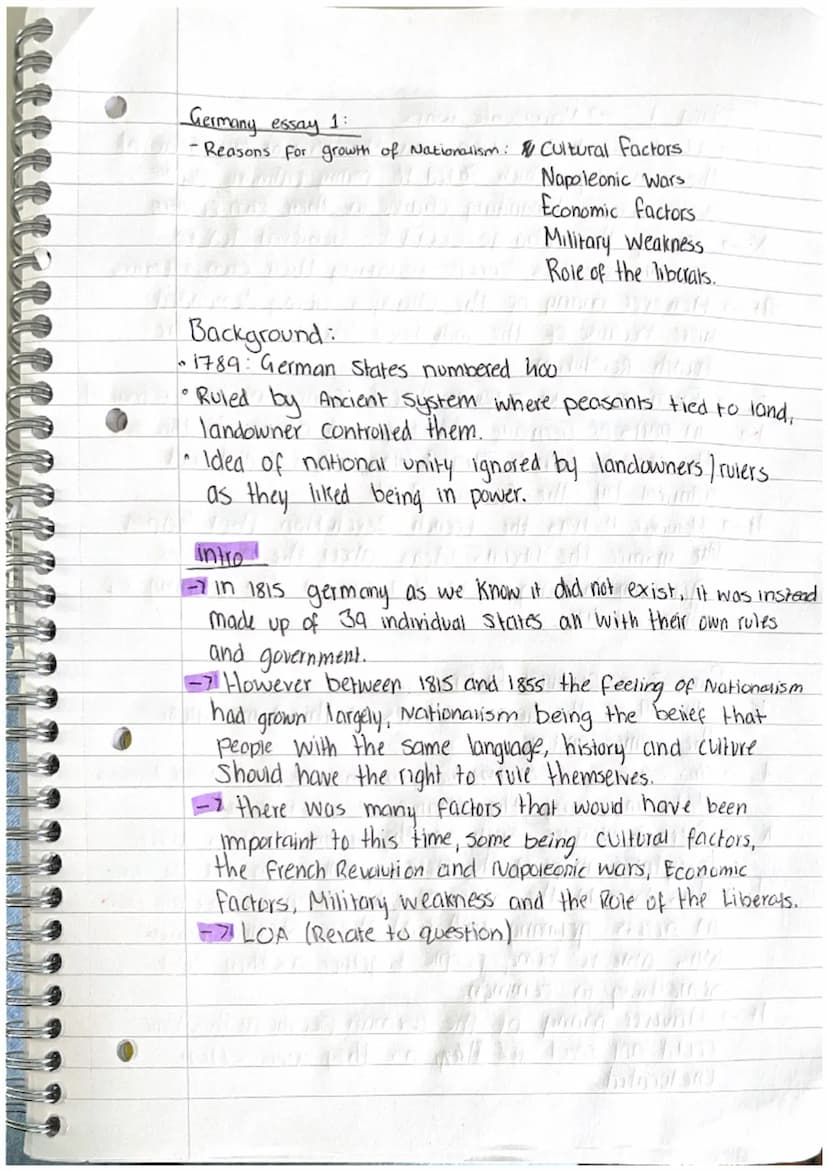 Germany essay 1:
- Reasons for growth of Nationalism: Cultural factors
Napoleonic wars
Economic factors
Military weakness
Role of the liberals.
Background:
• 1789: German States numbered 400
• Ruled by Ancient System where peasants tied to land,
landowner controlled them.
• Idea of national unity ignored by landowners/rulers
as they liked being in power.
intro
→ in 1815 germany as we know it did not exist, it was instead
made up of 39 individual states all with their own rules
and government.
→ However between 1815 and 1855 the feeling of Nationalism
had grown largely, Nationalism being the belief that
people with the same language, history and culture
should have the right to rule themselves.
→ there was many factors that would have been
importaint to this time, some being cultural factors,
the French Revolution and Napoleonic wars, Economic
factors, Military weakness and the Role of the Liberals.
→ LOA (Relate to question)